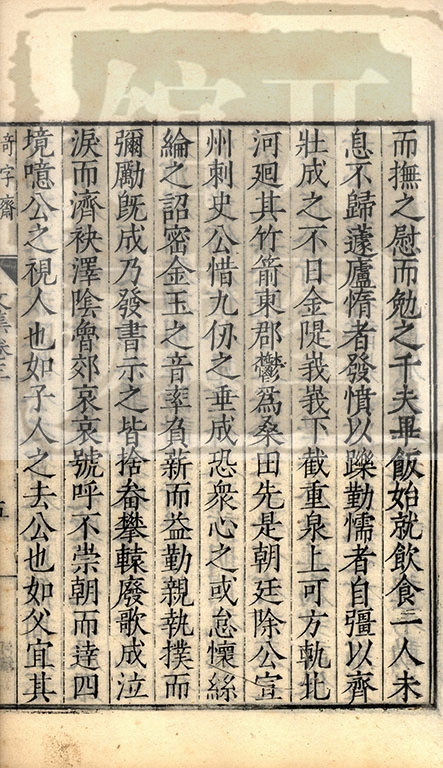 而撫之慰而勉之千夫畢飯始就飲食一人未
息不歸蘧廬惰者發憤以躒勤懦者自彊以齊
壯成之不日金隄峩峩下截重泉上可方軌北
河廻其竹箭東郡鬱爲桑田先是朝廷除公宣
州刺史公惜九仞之垂成恐衆心之或怠懷絲
綸之詔密金玉之音率負薪而益勤親執撲而
彌勵旣成乃發書示之皆捨畚攀轅廢歌成泣
淚而濟袂澤隂魯郊哀哀號呼不崇朝而達四
境噫公之視人也如子人之去公也如父宜其
奇字齋
文集卷三
五